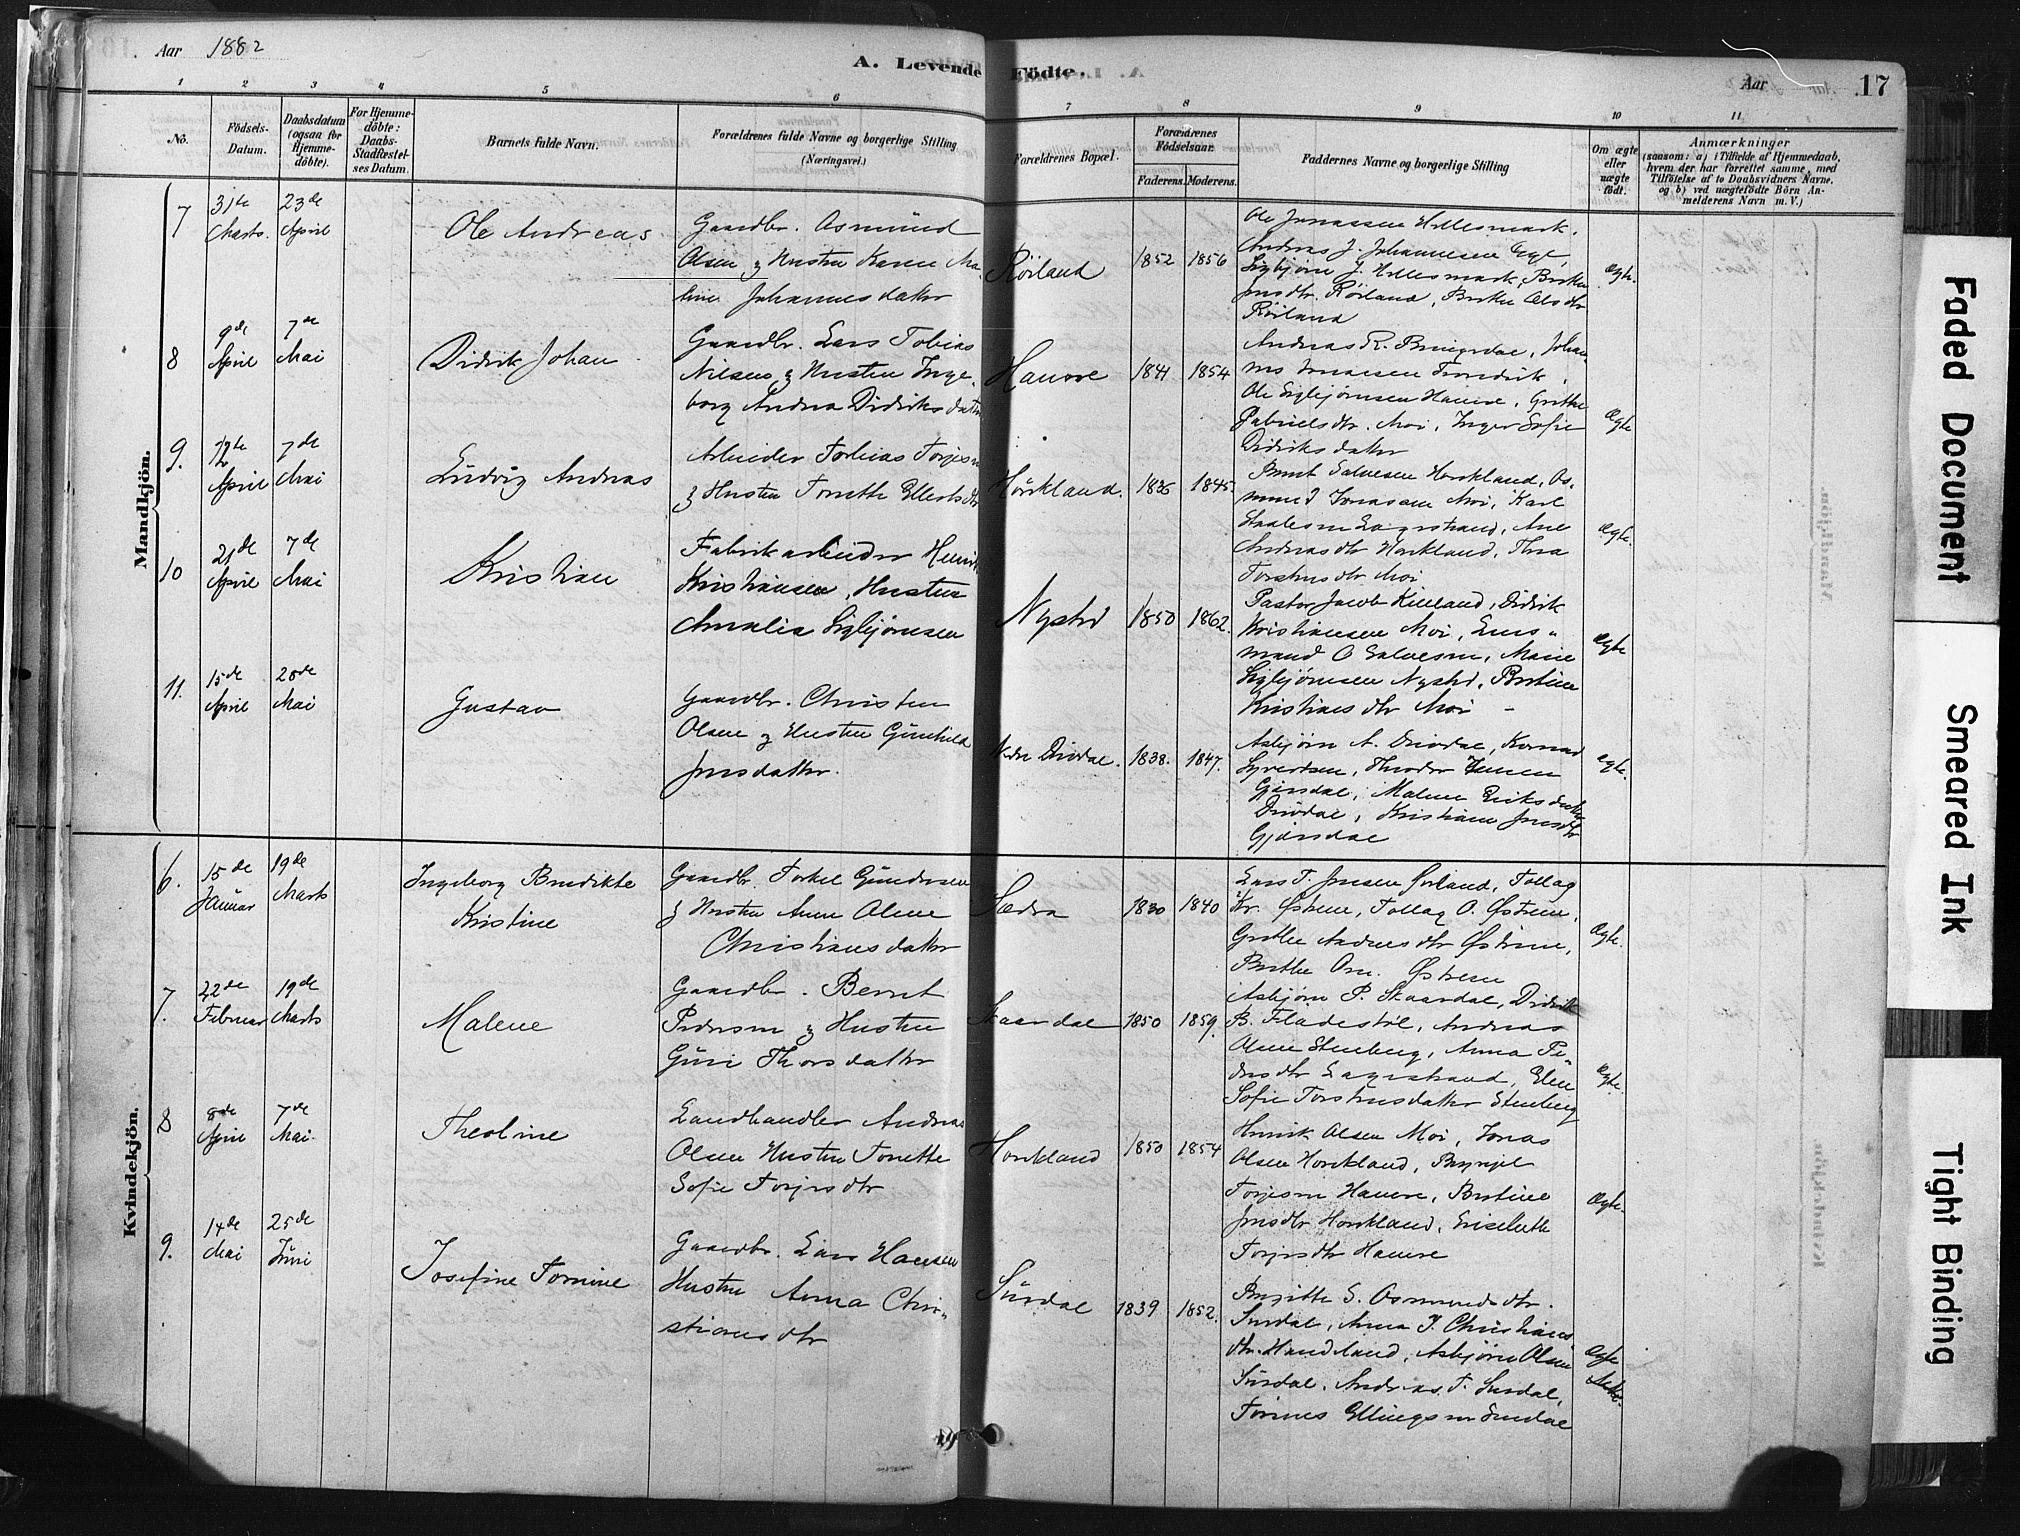 Aar 1882
A. Levende Födte.
Aar
17
1 2 3 4 5 6 7 8 9 10 11
No.
Födsels-Datum.
Daabsdatum (ogsaa for Hjemme-döbte).
For Hjemme-döbte: Daabs-Stadfæstel-ses Datum.
Barnets fulde Navn.
Forældrenes fulde Navne og borgerlige Stilling
(Næringsvei.)
Forældrenes Bopæl.
Forældrenes Födselsaar.
Faderens. Moderens.
Faddernes Navne og borgerlige Stilling
Om ægte eller uægte födt.
Anmærkninger
(saasom: a) i Tilfælde af Hjemmedaab,
hvem der har forrettet samme, med
Tilföielse af to Daabsvidners Navne,
og b) ved uægtefödte Börn An-
melderens Navn m. V.)
Mandkjön.
7
31te Marts.
23de April
Ole Andreas
Gaardbr. Osmund
Olsen & Hustru Karen Ma-
line Johannesdatter
Röiland
1852 1856
Ole Jonassen Hellesmark,
Andreas J. Johannesen Ege,
Sigbjørn J. Hellesmark, Berthe
Jensdtr. Röiland, Berthe Olsdtr
Röiland
Ægte.
8
9de April
7de Mai
Didrik Johan
Gaardbr. Lars Tobias
Nilsen & Hustru Inge-
borg Andrea Didriksdatter
Hauvre
1841 1854
Ole Sigbjørnsen Hauvre, Grethe
Gabrielsdtr. Moi, Inger Sofie
Didriksdatter
Ægte
9.
12te April
7de Mai
Ludvig Andreas
Arbeider Tobias Torjesen
& Hustru Tonette Ellertsdtr
Hörkland.
1836 1845.
Bernt Salvesen Horkland, Os-
mund Jonassen Moi, Karl
Andreasdtr Horkland, Thea
Torstensdtr Moi
Ægte.
10
21de April
7de Mai
Kristian
Fabrikarbeider Henrik
Kristiansen, Hustru
Amalie Sigbjørnsen
Nysted
1850 1862.
Pastor Jacob Kielland, Didrik
Kristiansen Moi,
mand O Salvesen, Marie
Sigbjørnsen Nysted, Bertine
Kristiansdtr Moi
Ægte
11.
15de April
20de Mai
Gustav
Gaardbr. Christen
Olsen & Hustru Gunhild
Jensdatter.
Nedre Drivdal.
1838. 1847.
Asbjørn A. Drivdal, Konrad
Syvertsen, Theodor Jensen
Gjersdal, Malene Eriksdatter
Drivdal, Kristiane Jensdtr
Gjersdal
Ægte.
Kvindekjön.
6.
15de Januar
19de Marts
Ingeborg Bendikte
Kristine
Gaardbr. Torkel Gundersen
& Hustru Anne Oline
Christiansdatter
Sædra
1830 1840
Lars T. Jensen Ørland, Tollag
Kr. Østrem, Tollag O. Østrem,
Grethe Andreasdtr Østrem,
Berthe Østrem
Ægte.
7.
22de Februar
19de Marts
Malene
Gaardbr. Bernt
Pedersen & Hustru
Guri Thorsdatter
Skaardal
1850 1859.
Asbjørn P. Skaardal, Didrik
B. Fladestöl, Andreas
Olsen Stenberg, Anna Pe-
dersdtr Lagestrand, Elen
Sofie Torstensdatter Stenberg
Ægte.
8
8de April
7de Mai.
Theoline
Landhandler Andreas
Olsen Hustru Tonette
Sofie Torjesdtr
Horkland
1850 1854
Henrik Olsen Moi, Jonas
Olsen Horkland,
Torjesen Hauvre, Bertine
Jensdtr Horkland, Elisabeth
Torjesdtr Hauvre
Ægte.
9.
14de Mai
25de Juni
Josefine Tomine
Gaardbr. Lars Hansen
Hustru Anna Chri-
stiansdtr
Surdal
1839 1852.
Birgitte S. Osmundsdtr.
Surdal, Anna J. Christians
dtr. Handeland, Asbjørn Olsen
Surdal, Andreas T. Surdal,
Tönnes Ellingsen Surdal
Ægte
Faded Document
Smeared Ink
Tight Binding